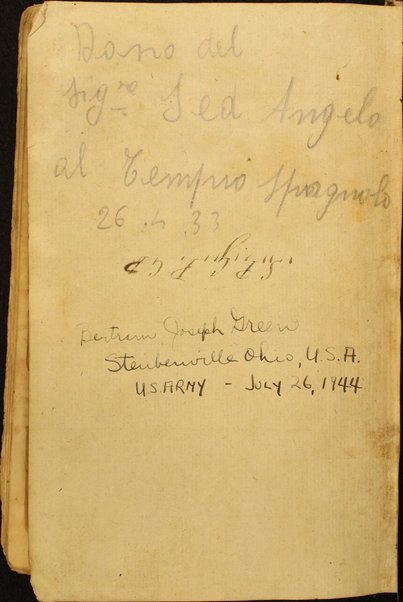 Dono del
Sig.re Sed Angelo
al Tempio Spagnolo
26.4.33
Bertram Joseph Green
Steubenville Ohio, U.S.A.
U.S. ARMY - JULY 26, 1944